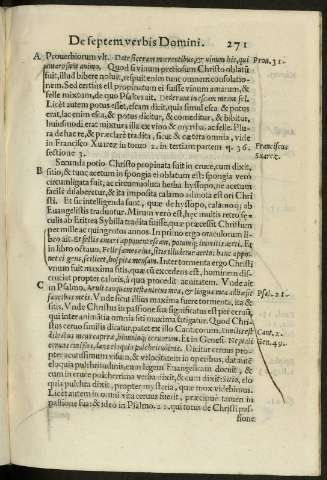 De septem verbis Domini. 271
A Prouerbiorum vlt. Date siceram mœrentibus, & vinum his, qui Prou. 31.
amaro sunt animo. Quod si vinum pretiosum Christo oblatũ
fuit, illud bibere noluit, respuit enim tunc omnem consolatio-
nem. Sed certius est propinatum ei fuisse vinum amarum, &
felle mixtum, de quo Psaltes ait. Dederunt in escam meam fel.
Licèt autem potus esset, escam dicit, quia simul esca & potus
erat, lac enim esca, & potus dicitur, & comeditur, & bibitur,
huiusmodi erat mixtura illa ex vino & myrrha, ac felle. Plu-
ra de hac re, & præclarè tradita, sicut & cætera omnia, vide
in Francisco Xuarez in tomo 2. in tertiam partem q. 36. Franciscus
sectione 3. Suarez.
Secunda potio Christo propinata fuit in cruce, cum dixit,
B sitio, & tunc acetum in spongia ei oblatum est: spongia verò
circumligata fait, ac circumuoluta herba hyssopo, ne acetum
facilè dilaberetur, & ita imposita calamo admota est ori Chri
sti. Et sic intelligenda sunt, quæ de hyssopo, calamoq; ab
Euangelistis traduntur. Mirum verò est, hęc multis retro sę-
culis ab Eritrea Sybilla tradita fuisse, quæ præcessit Christum
per mille ac quingentos annos. In primo ergo oraculorum li-
bro ait.
in libro octauo.
Inter tormenta ergo Christi
vnum fuit maxima sitis, quæ cũ excedens est, hominem dis-
cruciat propter caloris, à qua procedit acuitatem. Vnde ait
C in Psalmo. Aruit tanquam testa virtus mea, & lingua mea adhæsit Psal. 21.
faucibus meis. Vnde sicut illius maxima fuere tormenta, ita & si-
tis. Vnde Christus in passione sua significatus est per ceruũ,
qui inter animātia omnia siti maxima fatigatur. Quod Chri-
stus ceruo similis dicatur, patet ex illo Canticorum. Similis est Cant. 2.
dilectus meus capreæ, hinnuloq; ceruorum. Et in Genesi. Neptali Gen. 49.
ceruus emissus, dans eloquia pulchritudinis. Dicitur ceruus pro-
pter acutissimum visum, & velocitatem in operibus, dat autē
eloquia pulchritudinis, cum legem Euangelicam docuit, &
cum in cruce pulcherrima verba dixit, & cum dixit: sitio, elo
quia pulchra dixit, propter mysteria, quæ mox videbimus.
Licèt autem in omni vita ceruus fuerit, præcipuè tamen in
passione sua: & ideo in Psalmo. 21. qui totus de Christi pas-
sione